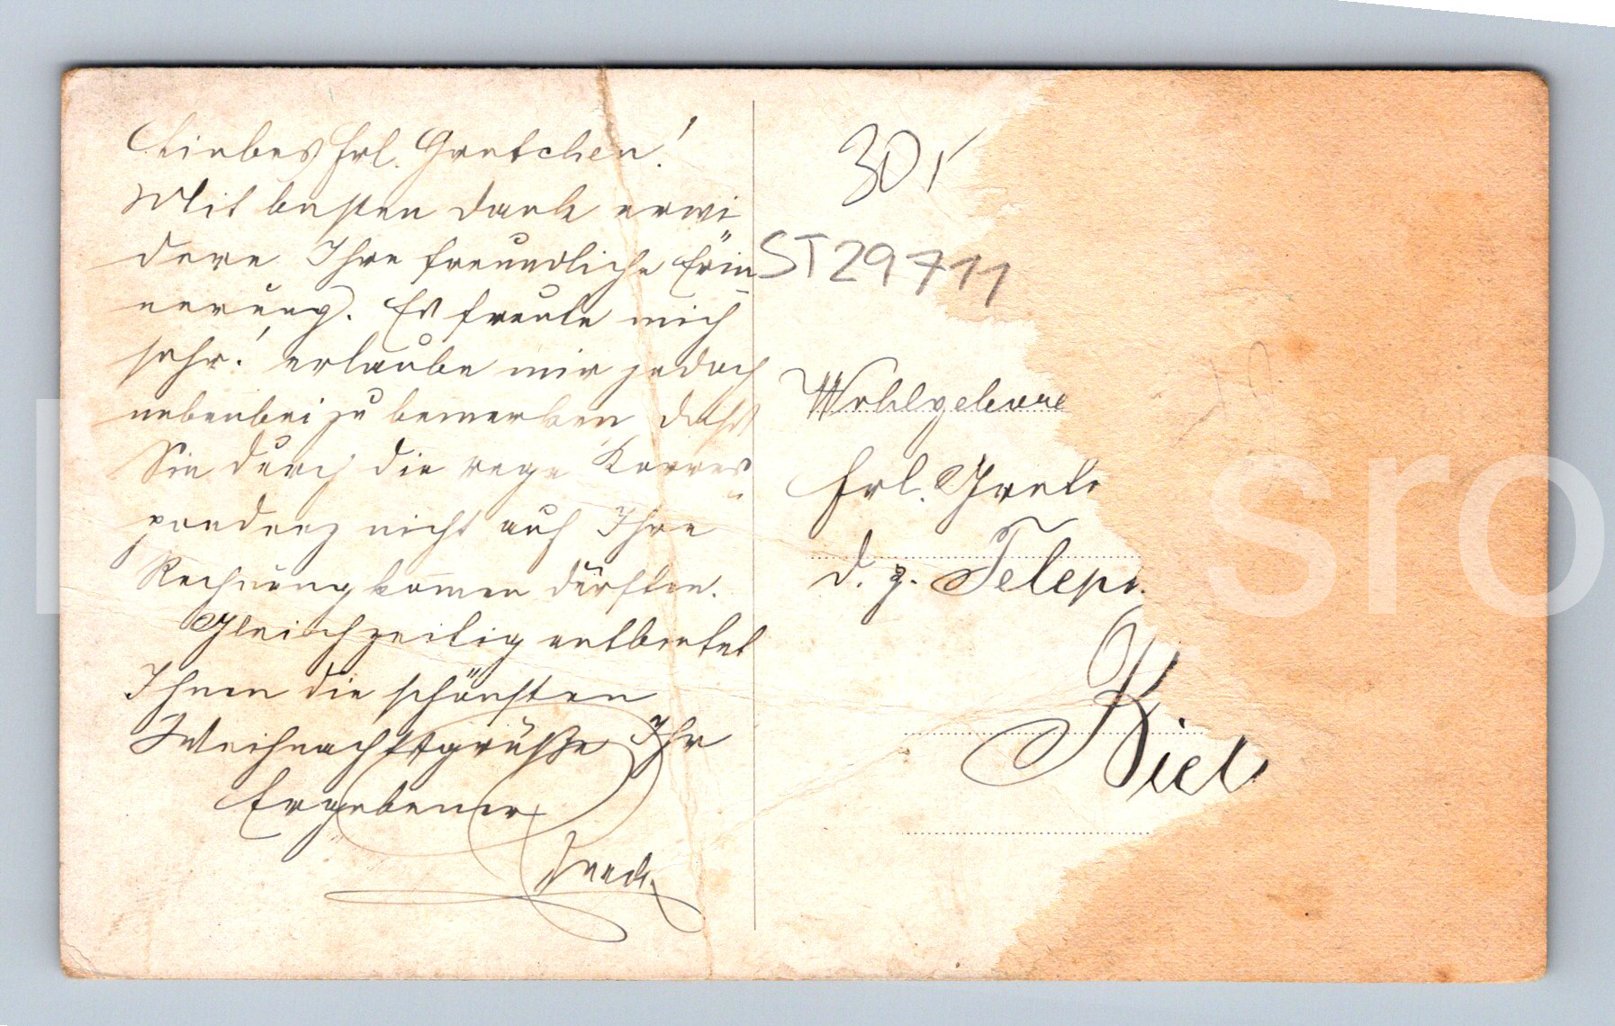 Liebes Frl. Gretchen!
Mit besten Dank erwi
dere Ihre freundliche Erin
nerung. Es freute mich
sehr! erlaube mir jedoch
nebenbei zu bemerken dass
Sie durch die rege Korres
pondenz nicht auf Ihre
Rechnung kommen dürften.
Gleichzeitig entbietet
Ihnen die schönsten
Weihnachtsgrüße Ihr
Ergebener
30,
ST29711
Wohlgebore
Frl. Grete
d. z. Teleph
Kiel
sro